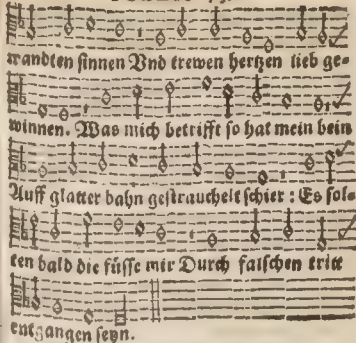 wandten sinnen Vnd trewen hertzen lieb ge-
winnen. Was mich betrifft so hat mein bein
Auff glatter bahn gestrauchelt schier: Es sol-
ten bald die füsse mir Durch falschen tritt
entgangen seyn.